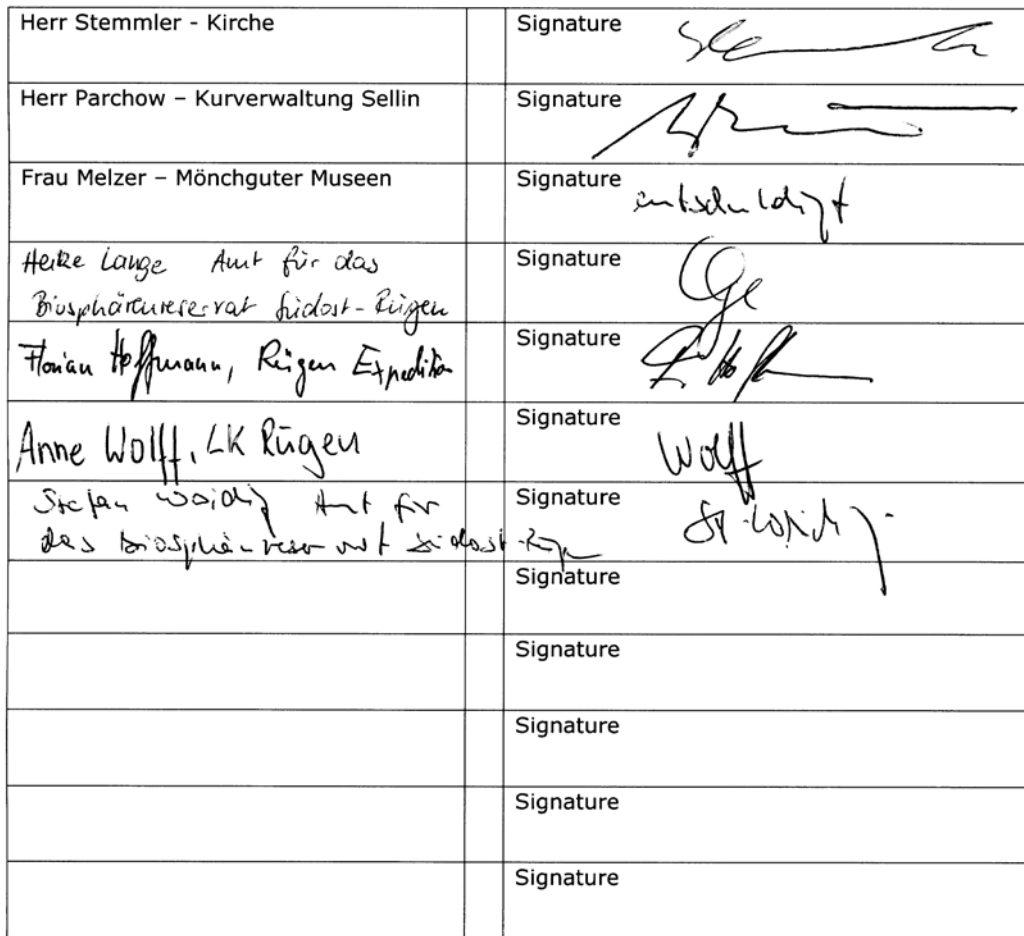 Herr Stemmler - Kirche
Signature
Herr Parchow – Kurverwaltung Sellin
Signature
Frau Melzer – Mönchguter Museen
Signature entschuldigt
Heike Lange Amt für das
Biosphärenreservat Südost-Rügen
Signature
Florian Hoffmann, Rügen Expedition
Signature
Anne Wolff, LK Rügen
Signature Wolff
Stefan Woidig Amt für
das Biosphärenreservat Südost-Rügen
Signature St. Woidig
Signature
Signature
Signature
Signature
Signature